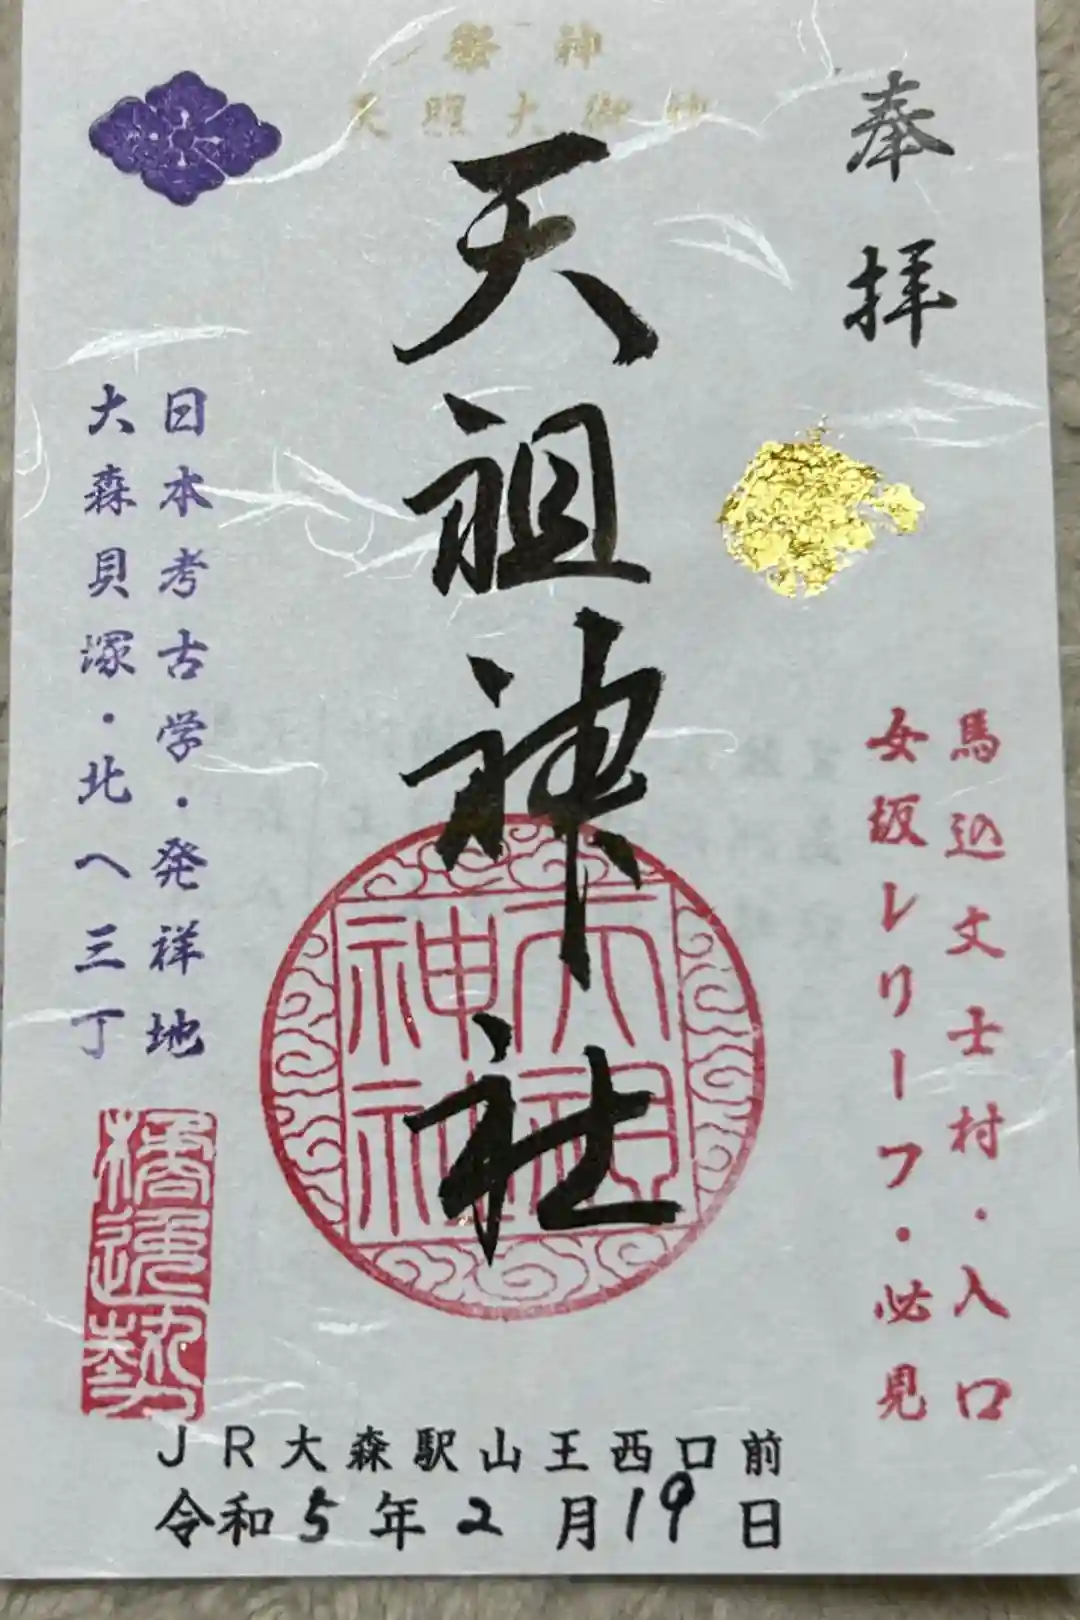 祭神
天照大御神
奉拝
天祖神社
馬込文士村・入口
女坂レリーフ・必見
日本考古学・発祥地
大森貝塚・北へ三丁
天祖
神社
JR大森駅山王西口前
令和5年2月19日